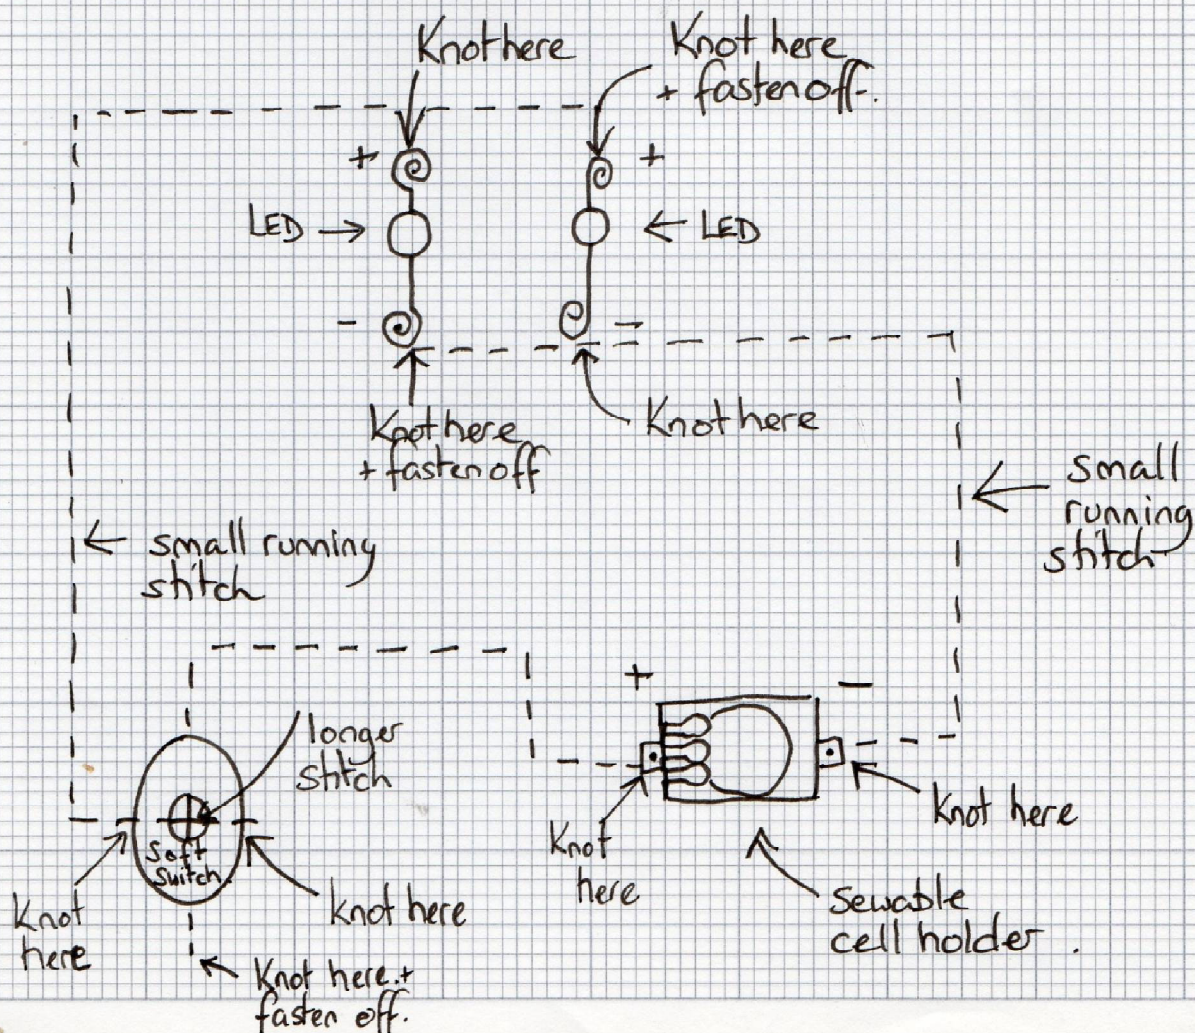 Knot here
Knot here
+ fasten off.
+
+
LED
LED
-
-
Knot here
+ fasten off
Knot here
small
running
stitch
small running
stitch
+
-
longer
stitch
Soft
Switch.
Knot
here
Knot here
Knot
here
Knot here
knot here
Sewable
cell holder.
Knot here +
fasten off.